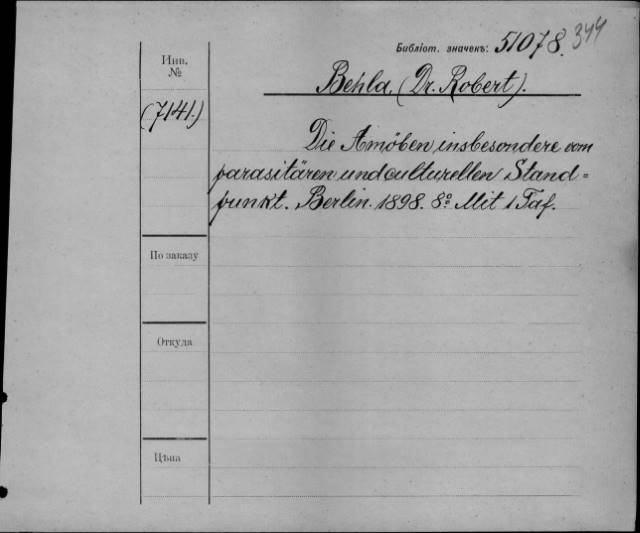 Библіот. значенъ: 51078. 344
Инв.
№
Behla. (Dr. Robert).
(7141.)
Die Amöben insbesondere vom
parasitären und culturellen Stand=
punkt. Berlin. 1898. 8º Mit 1 Taf.
По заказу
Откуда
Цѣна